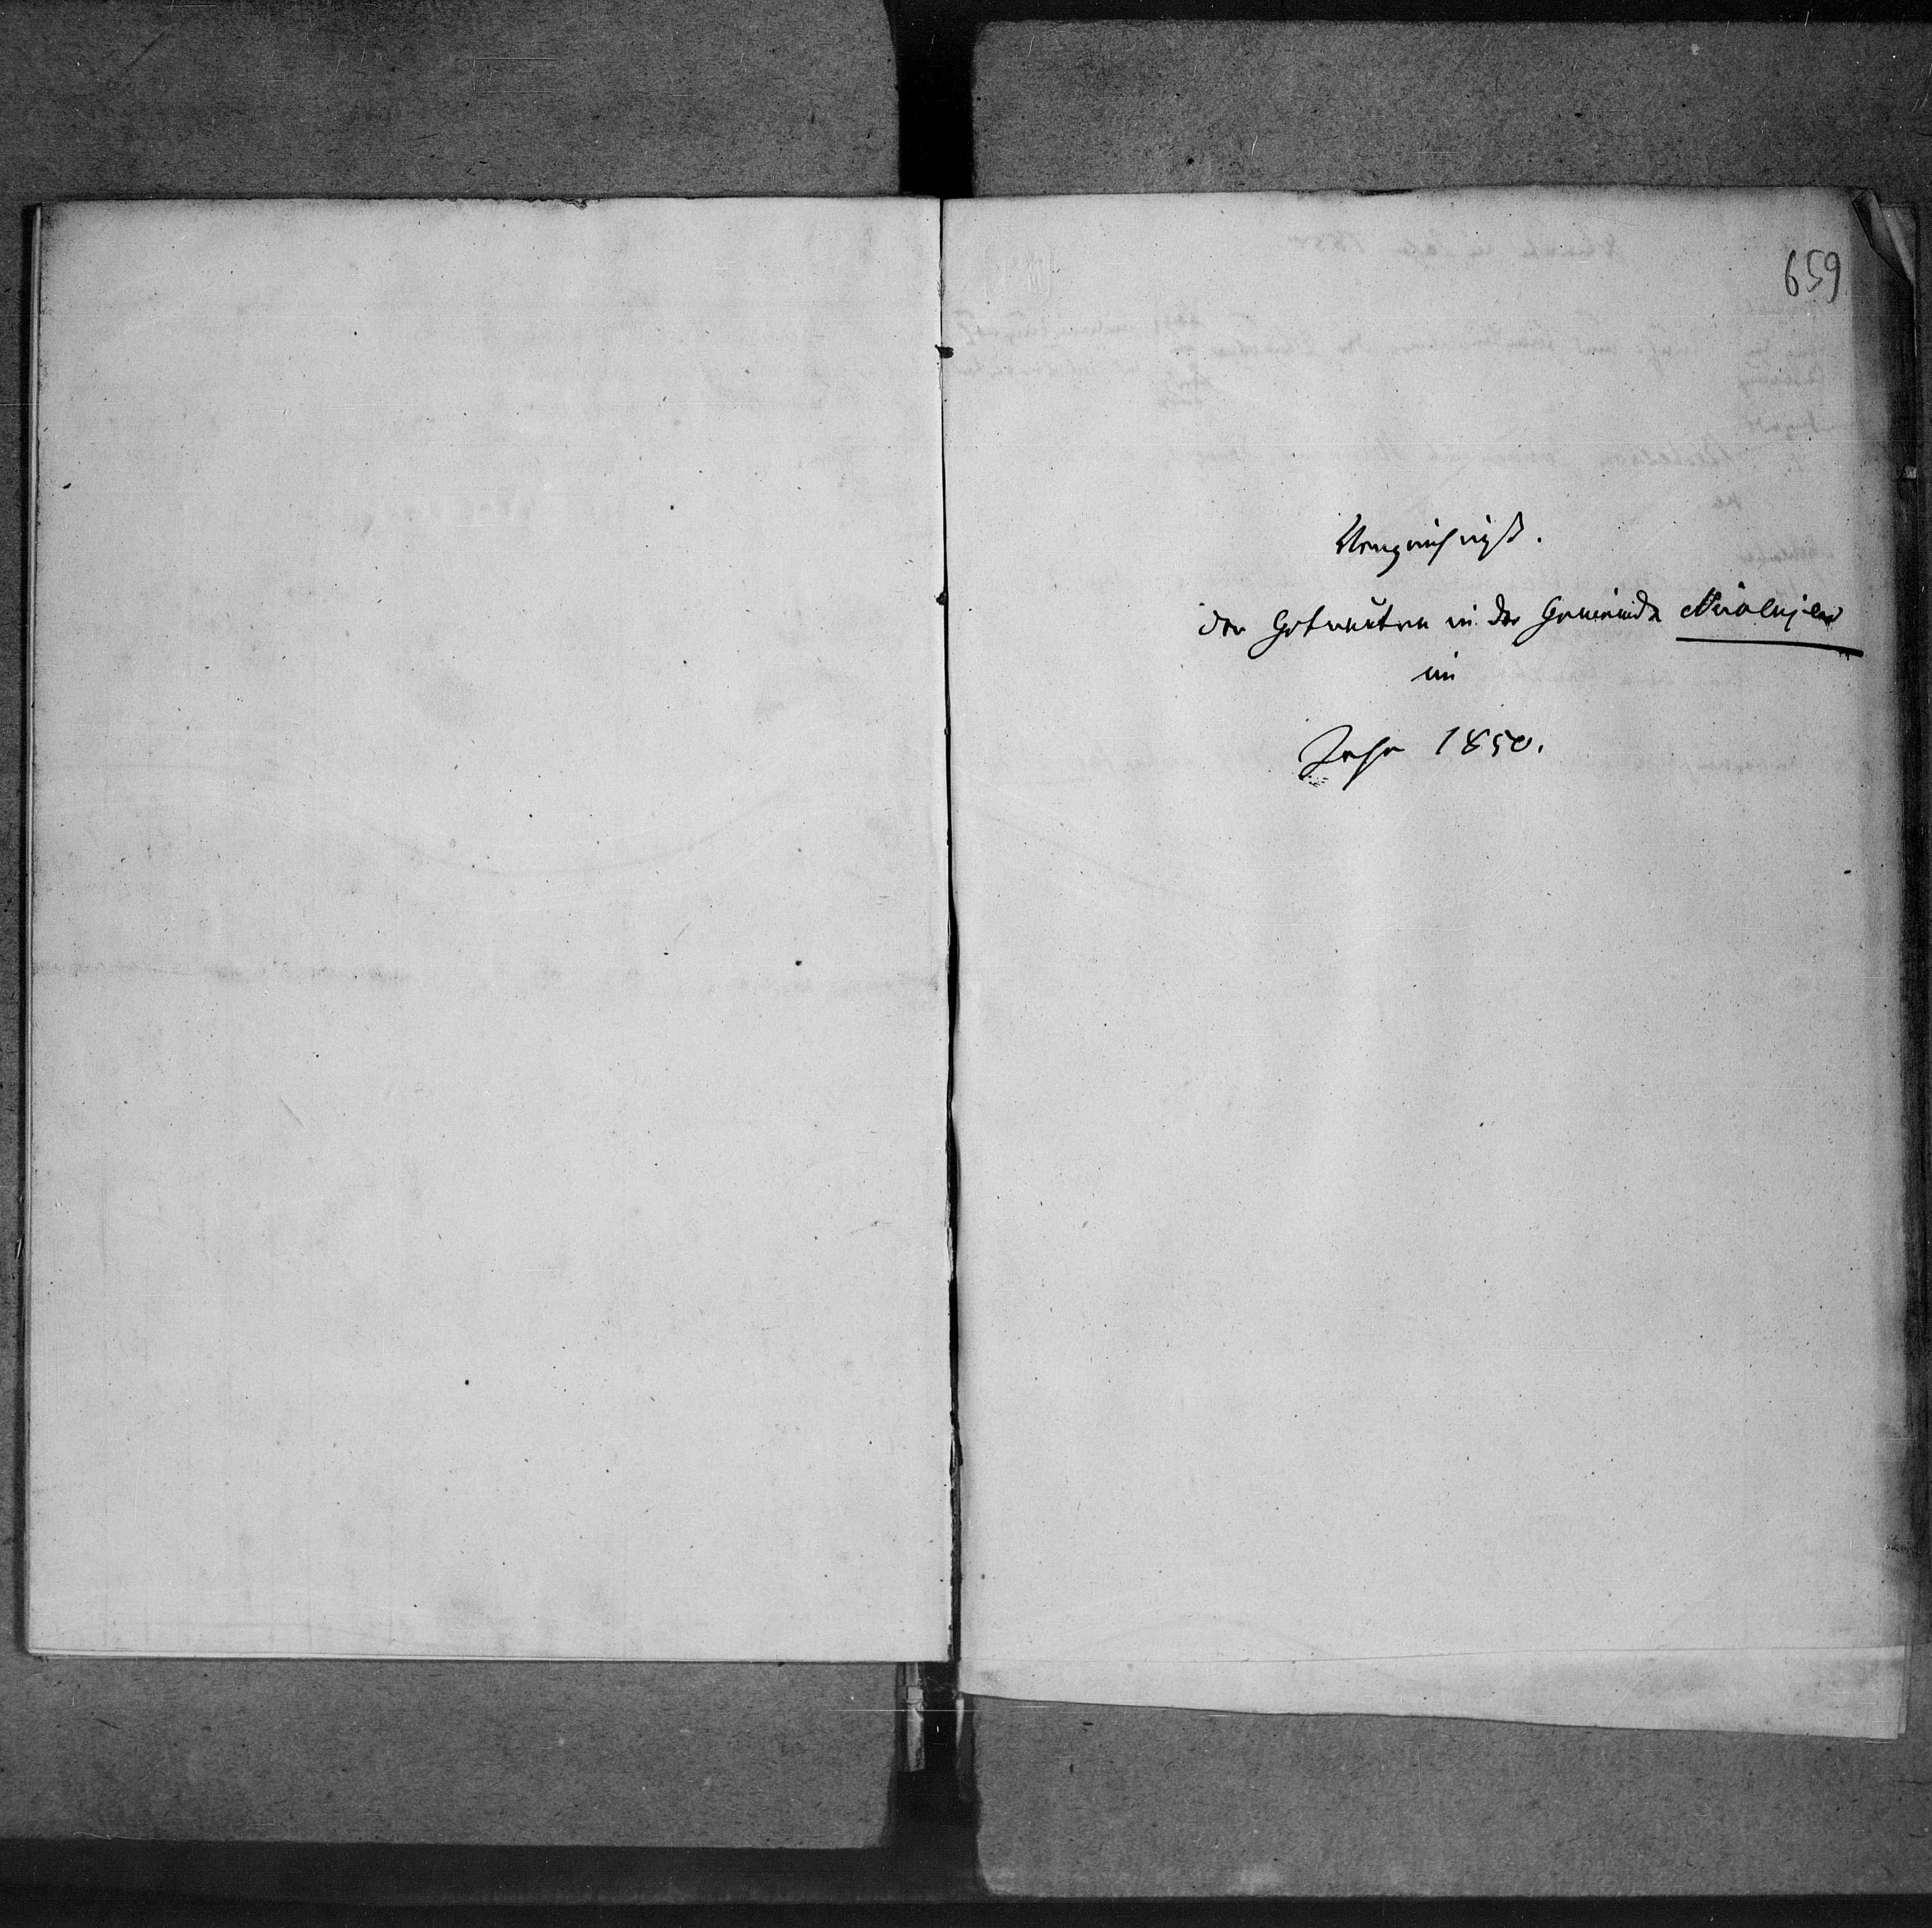 659
Verzeichniß.
der Getrauten in der Gemeinde
im
Jahr 1850.